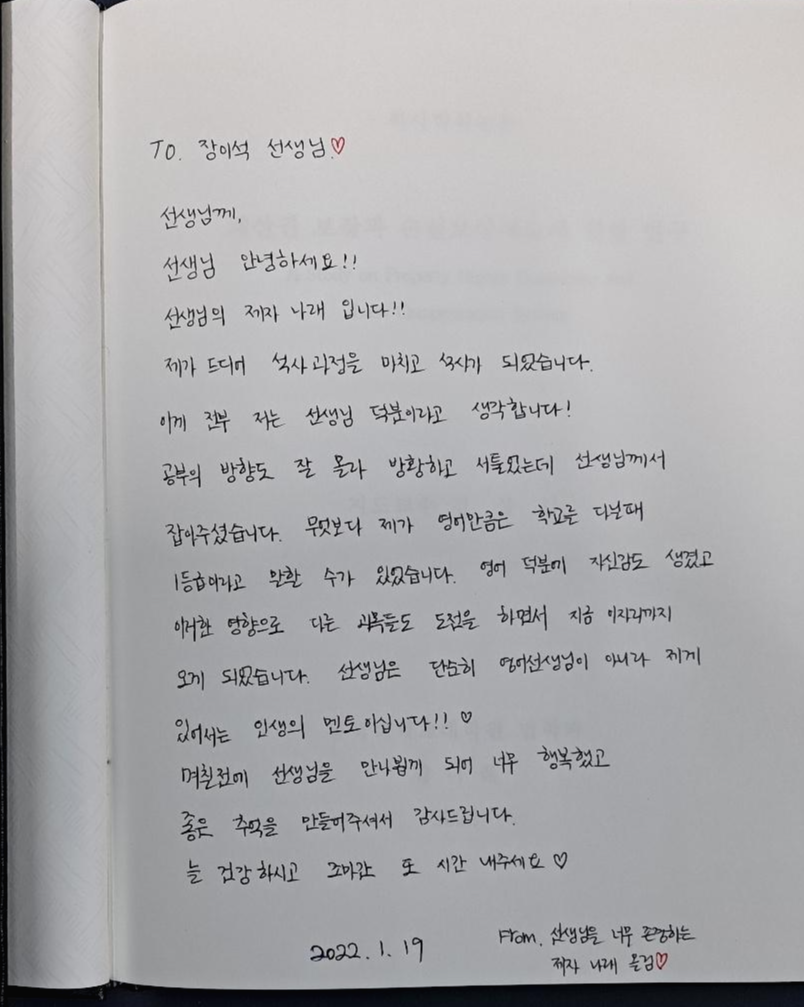 TO. 장이석 선생님♡
선생님께,
선생님 안녕하세요!!
선생님의 제자 나래 입니다!!
제가 드디어 석사과정을 마치고 석사가 되었습니다.
이게 전부 저는 선생님 덕분이라고 생각합니다!
공부의 방향도 잘 몰라 방황하고 서툴었는데 선생님께서
잡아주셨습니다. 무엇보다 제가 영어만큼은 학교를 다닐때
1등급이라고 말할 수가 있었습니다. 영어 덕분에 자신감도 생겼고
이러한 영향으로 다른 과목들도 도전을 하면서 지금 이자리까지
오게 되었습니다. 선생님은 단순히 영어선생님이 아니라 제게
있어서는 인생의 멘토이십니다!! ♡
며칠전에 선생님을 만나뵙게 되어 너무 행복했고
좋은 추억을 만들어주셔서 감사드립니다.
늘 건강하시고 조마간 또 시간 내주세요 ♡
2022. 1. 19
From. 선생님을 너무 존경하는
제자 나래 올림♡